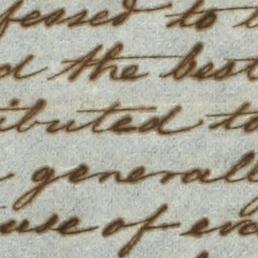 fessed to
d the best
ibuted to
generally
use of